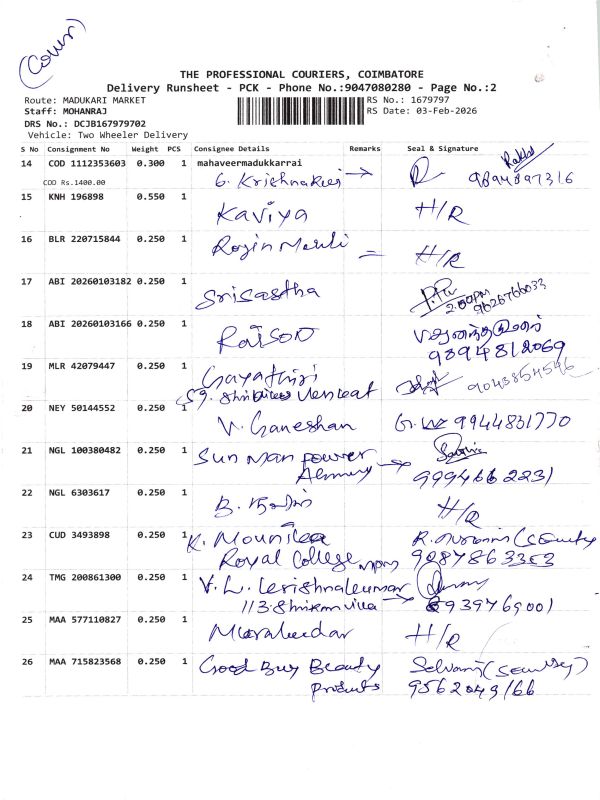 (Cover)
THE PROFESSIONAL COURIERS, COIMBATORE
Delivery Runsheet - PCK - Phone No.:9047080280 - Page No.:2
Route: MADUKARI MARKET
Staff: MOHANRAJ
DRS No.: DCJB167979702
Vehicle: Two Wheeler Delivery
RS No.: 1679797
RS Date: 03-Feb-2026
S No Consignment No Weight PCS Consignee Details Remarks Seal & Signature
14 COD 1112353603 0.300 1 mahaveermadukkarrai
COD Rs.1400.00 9894897316
15 KNH 196898 0.550 1 Kaviya H/R
16 BLR 220715844 0.250 1 H/R
17 ABI 20260103182 0.250 1 Srisastha 2.50pm
9626766033
18 ABI 20260103166 0.250 1 Raison
9894812069
19 MLR 42079447 0.250 1 Gayathiri
9043854596
20 NEY 50144552 0.250 1 V. Ganeshan 9944831770
21 NGL 100380482 0.250 1 Sun Man power
9994662231
22 NGL 6303617 0.250 1 H/R
23 CUD 3493898 0.250 1 K. Mounika
Royal College 9087863353
24 TMG 200861300 0.250 1 V.L. Krishnakumar
8939769001
25 MAA 577110827 0.250 1 H/R
26 MAA 715823568 0.250 1 Good Buy Beauty Selvam
Products 9562049166